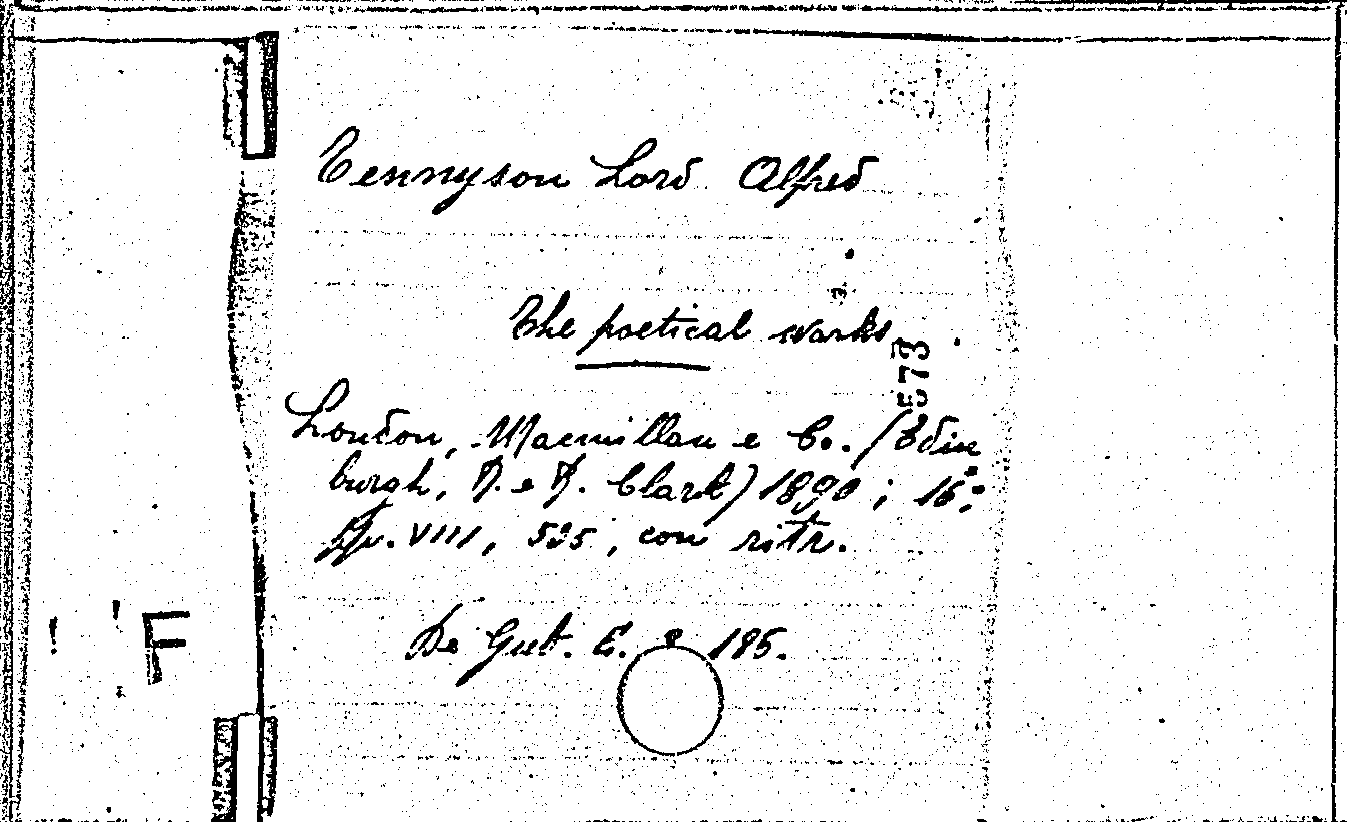 Tennyson Lord Alfred
The poetical works
573
London, Macmillan e Co. (Edin
burgh, R. e R. Clark) 1890; 16°.
pp. VIII, 535, con ritr.
De Gub. E. 8 185.
F